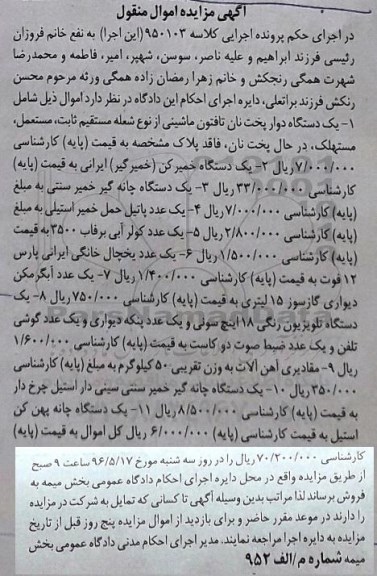 آگهی مزایده اموال منقول
در اجرای حکم پرونده اجرایی کلاسه ۹۵۰۱۰۳(این اجرا) به نفع خانم فروزان
رئیسی فرزند ابراهیم و علیه ناصر، سوسن، شهپر، امیر، فاطمه و محمدرضا
شهرت همگی رنجکش و خانم زهرا رمضان زاده همگی ورثه مرحوم محسن
رنکش فرزند براتعلی، دایره اجرای احکام این دادگاه در نظر دارد اموال ذیل شامل
۱- یک دستگاه دوار پخت نان تافتون ماشینی از نوع شعله مستقیم ثابت، مستعمل،
مستهلک، در حال پخت نان، فاقد پلاک مشخصه به قیمت (پایه) کارشناسی
۷/۰۰۰/۰۰۰ ریال ۲- یک دستگاه خمیرکن (خمیرگیر) ایرانی به قیمت (پایه)
کارشناسی ۳۳/۰۰۰/۰۰۰ ریال ۳- یک دستگاه چانه گیر خمیر سنتی به مبلغ
(پایه) کارشناسی ۷/۰۰۰/۰۰۰ ریال ۴- یک عدد پاتیل حمل خمیر استیلی به مبلغ
(پایه) کارشناسی ۲/۸۰۰/۰۰۰ ریال ۵- یک عدد کولر آبی برفاب ۳۵۰۰ به قیمت
(پایه) کارشناسی ۱/۵۰۰/۰۰۰ ریال ۶- یک عدد یخچال خانگی ایرانی پارس
۱۲ فوت به قیمت (پایه) کارشناسی ۱/۴۰۰/۰۰۰ ریال ۷- یک عدد آبگرمکن
دیواری گازسوز ۱۵ لیتری به قیمت (پایه) کارشناسی ۷۵۰/۰۰۰ ریال ۸- یک
دستگاه تلویزیون رنگی ۱۸ اینچ سونی و یک عدد پنکه دیواری و یک عدد گوشی
تلفن و یک عدد ضبط صوت دو کاست به قیمت (پایه) کارشناسی ۱/۶۰۰/۰۰۰
ریال ۹- مقادیری آهن آلات به وزن تقریبی ۵۰ کیلوگرم به مبلغ (پایه) کارشناسی
۳۵۰/۰۰۰ ریال ۱۰- یک دستگاه چانه گیر خمیر سنتی سینی دار استیل چرخ دار
به قیمت (پایه) کارشناسی ۸/۵۰۰/۰۰۰ ریال ۱۱- یک دستگاه چانه پهن کن
استیل به قیمت کارشناسی (پایه) ۶/۰۰۰/۰۰۰ ریال کل اموال به قیمت (پایه)
کارشناسی ۷۰/۲۰۰/۰۰۰ ریال را در روز سه شنبه مورخ ۹۶/۵/۱۷ ساعت ۹ صبح
از طریق مزایده واقع در محل دایره اجرای احکام دادگاه عمومی بخش میمه به
فروش برساند لذا مراتب بدین وسیله آگهی تا کسانی که تمایل به شرکت در مزایده
را دارند در موعد مقرر حاضر و برای بازدید از اموال مزایده پنج روز قبل از تاریخ
مزایده به دایره اجرا مراجعه نمایند. مدیر اجرای احکام مدنی دادگاه عمومی بخش
میمه شماره م/الف ۹۵۲